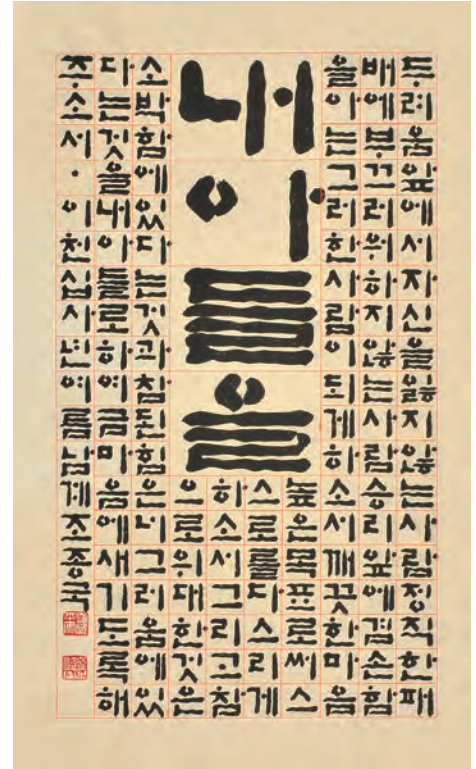 두려움앞에서자신을잃지않는사람정직한패
배에부끄러워하지않는사람승리앞에겸손함
을아는그러한사람이되게하소서깨끗한마음
내아들을
높은목표로써스
스로를다스리게
하소서그리고참
으로위대한것은
소박함에있다는것과참된힘은너그러움에있
다는것을내아들로하여금마음에새기도록해
주소서·이천십사년여름남계조종국